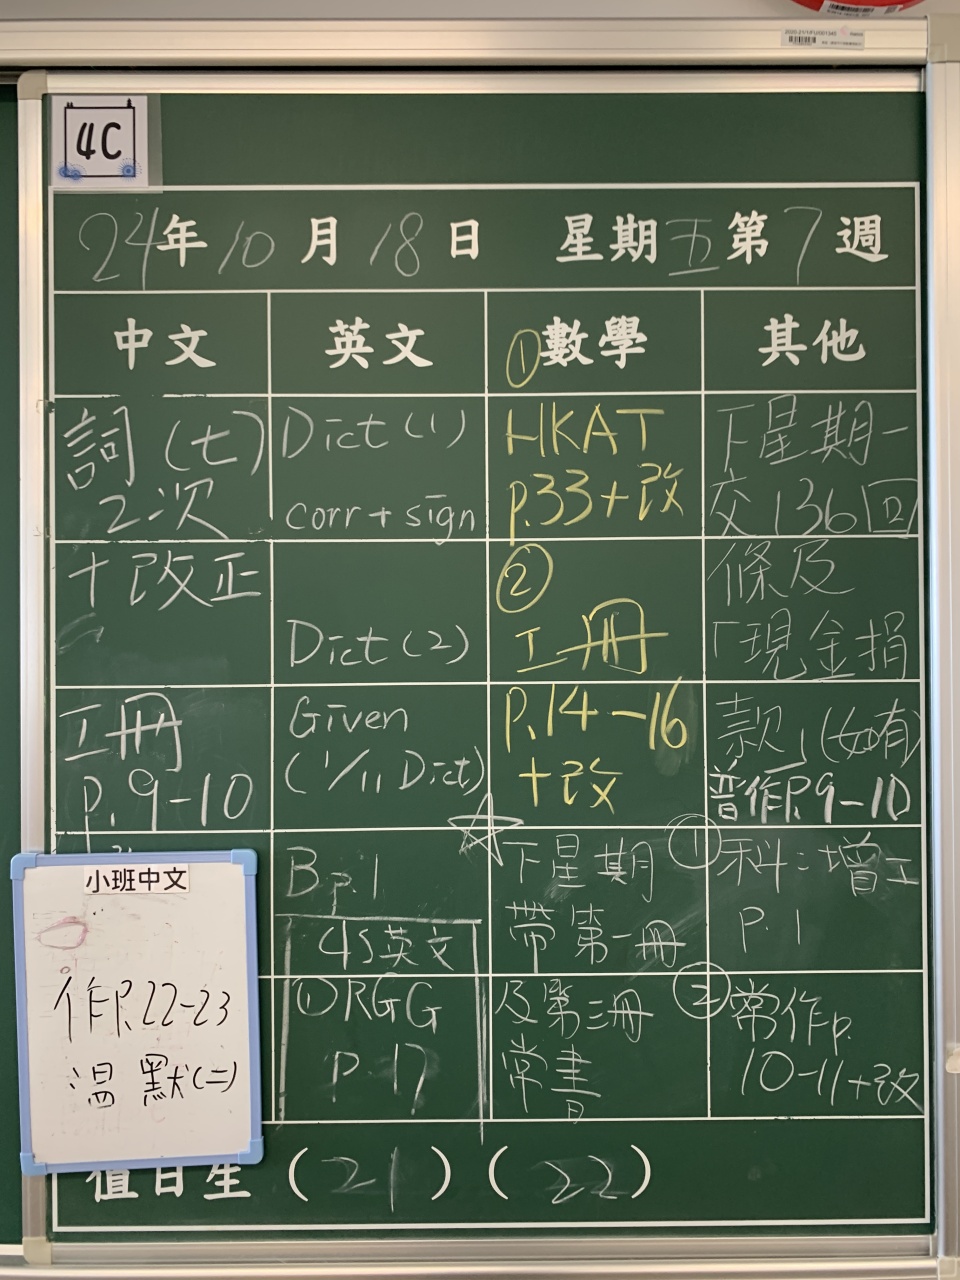 4C
24年10月18日 星期五第7週
中文
詞(七)
2次
+改正
工冊
p.9-10
英文
Dict(1)
corr+sign
Dict(2)
Given
(1/11 Dict)
B p.1
4S英文
①RGG
p.17
①數學
HKAT
p.33+改
②
工冊
p.14-16
+改
☆下星期
帶第一冊
及第三冊
常書
其他
下星期一
交136回
條及
「現金捐
款」(如有)
普作P.9-10
①科:增工
p.1
②常作p.
10-11+改
小班中文
作P.22-23
溫 默(二)
值日生 (21)(22)